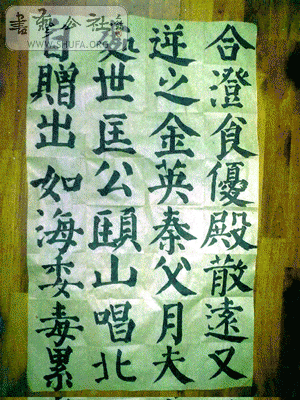 書藝公社
WWW.SHUFA.ORG
合澄食優殿散遠又
之金英秦父月夫
世匡公頤山唱北
贈出如海毒累